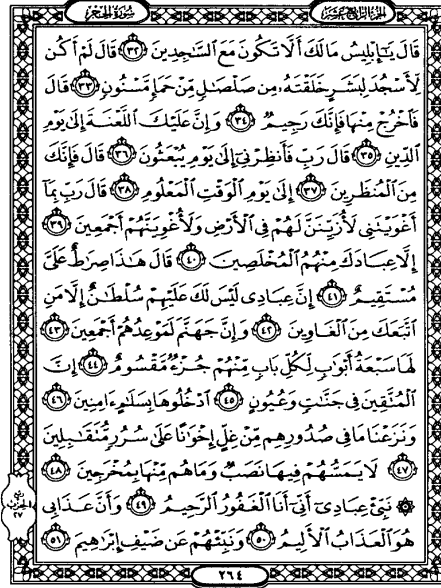 سُورَةُ الحِجْرِ الجُزْءُ الرَّابِعَ عَشَرَ
قَالَ يَٰٓإِبۡلِيسُ مَا لَكَ أَلَّا تَكُونَ مَعَ ٱلسَّٰجِدِينَ ٣٢ قَالَ لَمۡ أَكُن
لِّأَسۡجُدَ لِبَشَرٍ خَلَقۡتَهُۥ مِن صَلۡصَٰلٖ مِّنۡ حَمَإٖ مَّسۡنُونٖ ٣٣ قَالَ
فَٱخۡرُجۡ مِنۡهَا فَإِنَّكَ رَجِيمٞ ٣٤ وَإِنَّ عَلَيۡكَ ٱللَّعۡنَةَ إِلَىٰ يَوۡمِ
ٱلدِّينِ ٣٥ قَالَ رَبِّ فَأَنظِرۡنِيٓ إِلَىٰ يَوۡمِ يُبۡعَثُونَ ٣٦ قَالَ فَإِنَّكَ
مِنَ ٱلۡمُنظَرِينَ ٣٧ إِلَىٰ يَوۡمِ ٱلۡوَقۡتِ ٱلۡمَعۡلُومِ ٣٨ قَالَ رَبِّ بِمَآ
أَغۡوَيۡتَنِي لَأُزَيِّنَنَّ لَهُمۡ فِي ٱلۡأَرۡضِ وَلَأُغۡوِيَنَّهُمۡ أَجۡمَعِينَ ٣٩
إِلَّا عِبَادَكَ مِنۡهُمُ ٱلۡمُخۡلَصِينَ ٤٠ قَالَ هَٰذَا صِرَٰطٌ عَلَيَّ
مُسۡتَقِيمٌ ٤١ إِنَّ عِبَادِي لَيۡسَ لَكَ عَلَيۡهِمۡ سُلۡطَٰنٌ إِلَّا مَنِ
ٱتَّبَعَكَ مِنَ ٱلۡغَاوِينَ ٤٢ وَإِنَّ جَهَنَّمَ لَمَوۡعِدُهُمۡ أَجۡمَعِينَ ٤٣
لَهَا سَبۡعَةُ أَبۡوَٰبٖ لِّكُلِّ بَابٖ مِّنۡهُمۡ جُزۡءٞ مَّقۡسُومٌ ٤٤ إِنَّ
ٱلۡمُتَّقِينَ فِي جَنَّٰتٖ وَعُيُونٍ ٤٥ ٱدۡخُلُوهَا بِسَلَٰمٍ ءَامِنِينَ ٤٦
وَنَزَعۡنَا مَا فِي صُدُورِهِم مِّنۡ غِلٍّ إِخۡوَٰنًا عَلَىٰ سُرُرٖ مُّتَقَٰبِلِينَ
٤٧ لَا يَمَسُّهُمۡ فِيهَا نَصَبٞ وَمَا هُم مِّنۡهَا بِمُخۡرَجِينَ ٤٨
۞ نَبِّئۡ عِبَادِيٓ أَنِّيٓ أَنَا ٱلۡغَفُورُ ٱلرَّحِيمُ ٤٩ وَأَنَّ عَذَابِي
هُوَ ٱلۡعَذَابُ ٱلۡأَلِيمُ ٥٠ وَنَبِّئۡهُمۡ عَن ضَيۡفِ إِبۡرَٰهِيمَ ٥١
٢٦٤